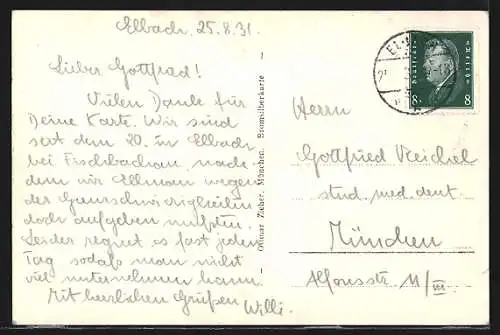 Elbach, 25.8.31.
Lieber Gottfried!
Vielen Dank für
Deine Karte. Wir sind
seit dem 20. in Elbach
bei Fischbachau, nach-
dem wir Ellmau wegen
der
doch aufgeben mußten.
Leider regnet es fast jeden
Tag sodaß man nicht
viel unternehmen kann.
Mit herzlichen Grüßen
Willi.
Ottmar Zieher, München. Bromsilberkarte
8 8
Herrn
Gottfried Reichel
stud. med. dent.
München
Alfonsstr. 11/III